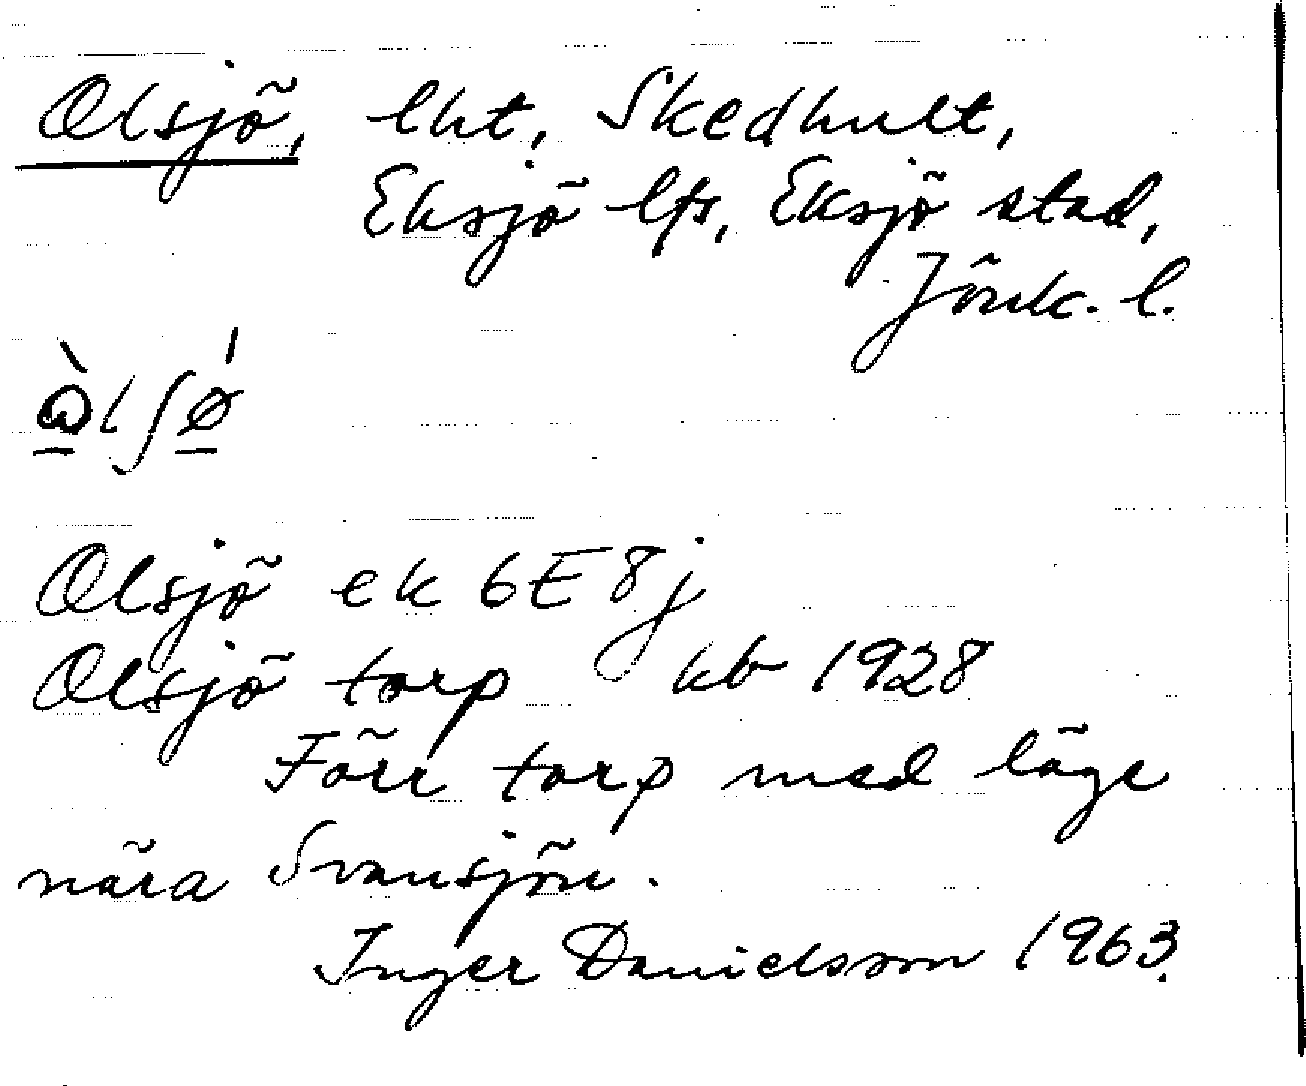 Olsjö, lht, Skedhult,
Eksjö lfs, Eksjö stad,
Jönk. l.
Olsjö ek 6E8j
Olsjö torp kb 1928
Förr torp med läge
nära Svansjön.
Inger Danielsson 1963.